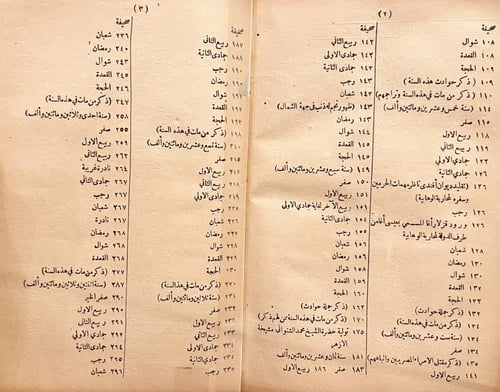 (٢)
صحيفة
١٠٨ شوال
١٠٨ القعدة
١٠٩ الحجة
١٠٩ (ذكر حوادث هذه السنة)
١١٠ (ذكر من مات في هذه السنة وتراجمهم)
١١٠ (سنة خمس وعشرين ومائتين وألف)
١١٠ صفر
١١٨ ربيع الاول
١١٩ ربيع الثاني
١٢٢ جمادي الاولي
١٢٦ جمادي الثانية
١٢٦ (تقليد ديوان أفندي ناظر مهمات الحرمين
وسفره لمحاربة الوهابية)
١٢٦ رجب
١٢٧ ورود قزلار أغا المسمى بعيسى أغا من
طرف الدولة لمحاربة الوهابية
١٢٨ شعبان
١٣٠ رمضان
١٣٠ شوال
١٣٢ القعدة
١٣٢ الحجة
١٣٢ (ذكر جملة حوادث)
١٣٤ (ذكر من مات في هذه السنة)
١٣٤ (سنة ست وعشرين ومائتين وألف)
١٣٤ صفر
١٣٤ (ذكر مقتل الامراء المصريين واتباعهم)
١٤١ ربيع الاول
صحيفة
١٤٢ ربيع الثاني
١٤٢ جمادي الاولى
١٤٢ جمادى الثانية
١٤٣ رجب
١٤٣ شعبان
١٤٣ (ظهور نجم له ذنب في جهة الشمال)
١٤٣ رمضان
١٤٤ شوال
١٤٥ القعدة
١٤٥ الحجة
١٤٩ (سنة سبع وعشرين ومائتين وألف)
١٥٠ صفر
١٥١ ربيع الاول
١٥١ ربيع الآخر لغاية جمادي الاولى
١٥٤ رجب
١٥٦ شعبان
١٥٦ رمضان
١٥٨ شوال
١٥٩ القعدة
١٦٠ الحجة
١٦٣ (ذكر جملة حوادث)
١٧٠ (ذكر من مات في هذه السنة ممن له ذكر)
١٧٥ تولية حضرة الشيخ محمد الشنواني مشيخة
الازهر
١٨١ (سنة ثمان وعشرين ومائتين وألف)
١٨٣ صفر ١٨٦ ربيع الاول
(٣)
صحيفة
١٨٧ ربيع الثاني
١٨٨ جمادى الثانية
١٩٠ رجب
١٩٠ رمضان
شوال
القعدة
الحجة
١٩٨ (ذكر من مات في هذه السنة)
٢١٠ (سنة تسع وعشرين ومائتين وألف)
٢١٥ صفر
٢١٧ ربيع الاول
٢١٨ ربيع الثاني
٢١٩ جمادي الاولى
٢٢٥ رجب
٢٢٦ شعبان
٢٢٧ رمضان
٢٢٨ شوال
٢٢٨ القعدة
٢٣٠ الحجة
٢٣٠ (ذكر من مات في هذه السنة)
٢٣١ (سنة ثلاثين ومائتين وألف)
٢٣٢ صفر
٢٣٣ ربيع الاول
٢٣٣ ربيع الثاني
٢٣٤ جمادي الاولى
٢٣٤ جمادي الثانية
٢٣٥ رجب
صحيفة
٢٣٦ شعبان
٢٤٠ رمضان
٢٤٣ شوال
٢٤٥ القعدة
٢٤٦ الحجة
٢٤٧ (ذكر من مات في هذه السنة)
٢٥٨ (سنة احدى وثلاثين ومائتين وألف)
٢٥٥ صفر
٢٥٩ ربيع الاول
٢٦٢ ربيع الثاني
٢٦٤ نادرة غريبة
٢٦٧ جمادى الثاني
٢٦٧ رجب
٢٦٧ شعبان
٢٦٧ نادرة
٢٦٨ رمضان
٢٦٨ شوال
٢٦٨ القعدة
٢٧١ الحجة
٢٧٧ (ذكر من مات في هذه السنة)
٢٨٧ (سنة اثنتين وثلاثين ومائتين وألف)
٢٩٠ صفر الخير
٢٩٠ ربيع الاول
٢٩١ ربيع الثاني
٢٩٢ جمادي الاولى
٢٩٤ جمادي الثانية
٢٩٥ رجب
٢٩٦ شعبان